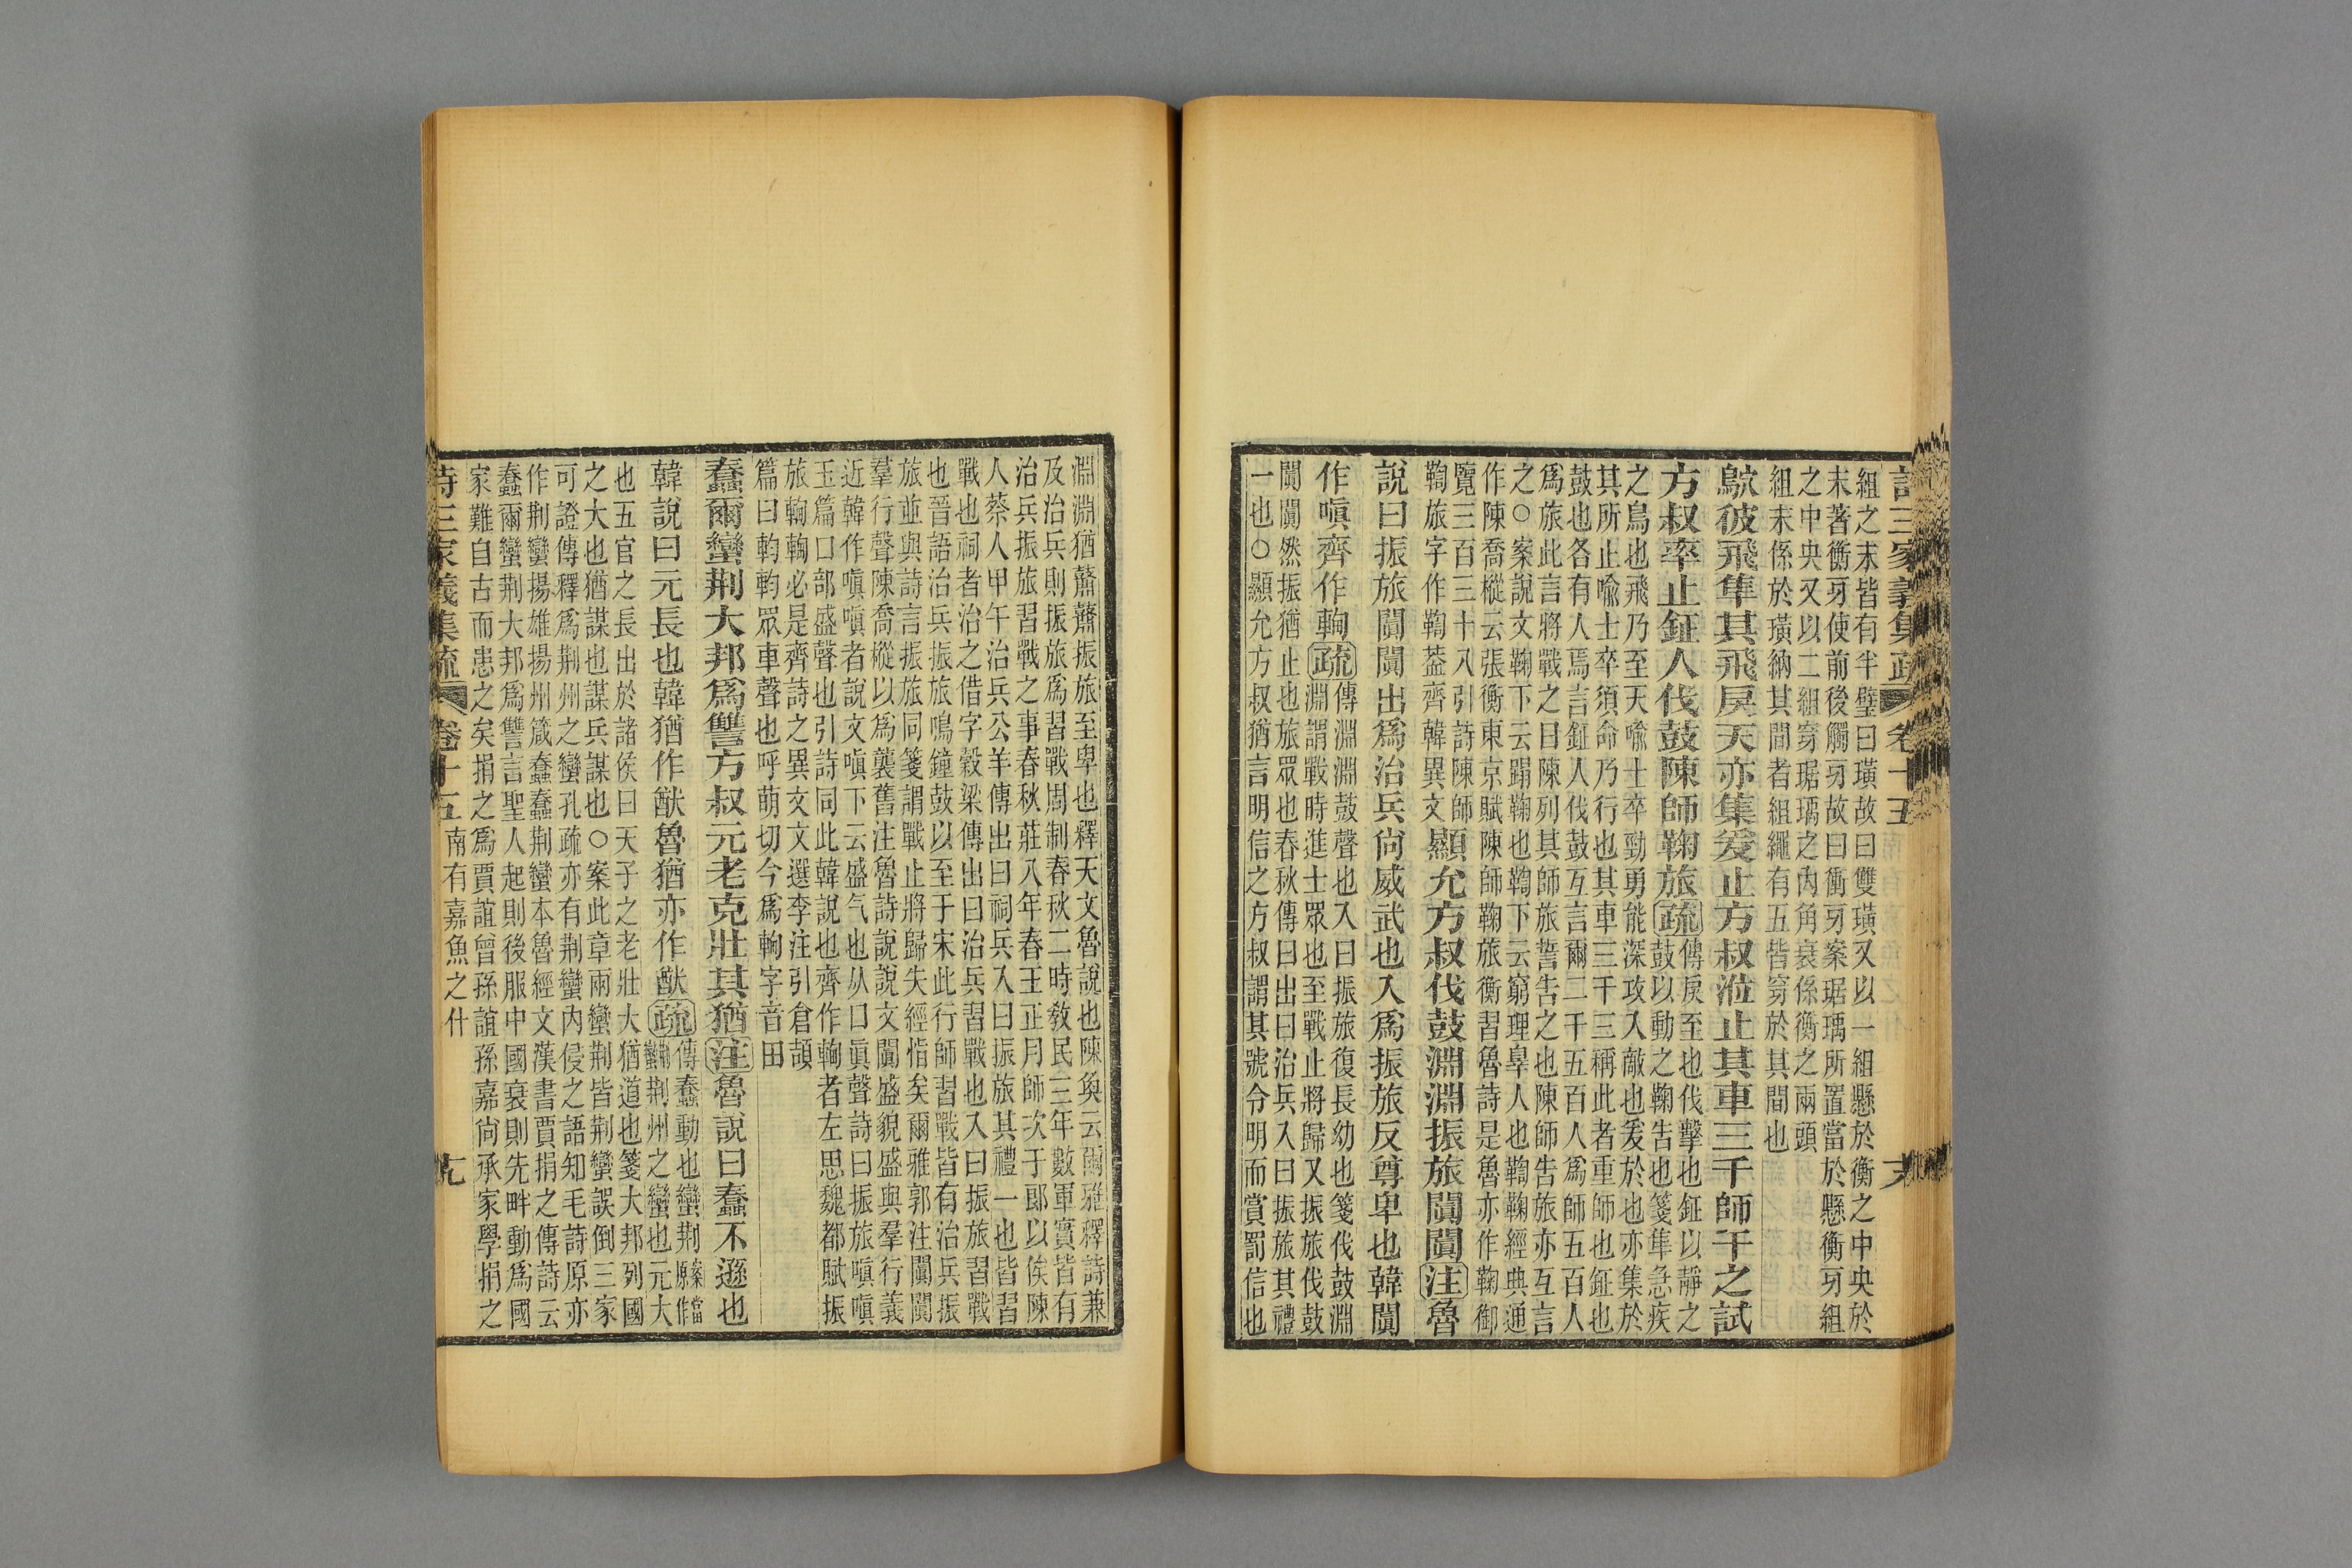 詩三家義集疏 卷十五
組之末皆有半璧曰璜故曰雙璜又以一組懸於衡之中央於
末著衝牙使前後觸牙故曰衝牙案琚瑀所置當於懸衡牙組
之中央又以二組穿琚瑀之內角衺係衡之兩頭
組末係於璜納其間者組繩有五皆穿於其間也
鴥彼飛隼其飛戾天亦集爰止方叔涖止其車三千師干之試
方叔率止鉦人伐鼓陳師鞠旅疏
傳戾至也伐擊也鉦以靜之
鼓以動之鞠告也箋隼急疾
之鳥也飛乃至天喻士卒勁勇能深攻入敵也爰於也亦集於
其所止喻士卒須命乃行也其車三千三稱此者重師也鉦也
鼓也各有人焉言鉦人伐鼓互言爾二千五百人爲師五百人
爲旅此言將戰之日陳列其師旅誓告之也陳師告旅亦互言
之○案說文鞠下云蹋鞠也鞫下云窮理辠人也鞫鞠經典通
作陳喬樅云張衡東京賦陳師鞠旅衡習魯詩是魯亦作鞠御
覽三百三十八引詩陳師
鞫旅字作鞫葢齊韓異文
顯允方叔伐鼓淵淵振旅闐闐注魯
說曰振旅闐闐出爲治兵尚威武也入爲振旅反尊卑也韓闐
作嗔齊作軥疏
傳淵淵鼓聲也入曰振旅復長幼也箋伐鼓淵
淵謂戰時進士眾也至戰止將歸又振旅伐鼓
闐闐然振猶止也旅眾也春秋傳曰出曰治兵入曰振旅其禮
一也○顯允方叔猶言明信之方叔謂其號令明而賞罰信也
淵淵猶鼘鼘振旅至卑也釋天文魯說也陳奐云爾雅釋詩兼
及治兵則振旅爲習戰周制春秋二時敎民三年數軍實皆有
治兵振旅習戰之事春秋莊八年春王正月師次于郎以俟陳
人蔡人甲午治兵公羊傳出曰祠兵入曰振旅其禮一也皆習
戰也祠者治之借字穀梁傳出曰治兵習戰也入曰振旅習戰
也晉語治兵振旅鳴鐘鼓以至于宋此行師習戰皆有治兵振
旅並與詩言振旅同箋謂戰止將歸失經恉矣爾雅郭注闐闐
羣行聲陳喬樅以爲襲舊注魯詩說說文闐盛貌盛與羣行義
近韓作嗔嗔者說文嗔下云盛气也从口眞聲詩曰振旅嗔嗔
玉篇口部盛聲也引詩同此韓說也齊作軥者左思魏都賦振
旅軥軥必是齊詩之異文文選李注引倉頡
篇曰軥軥眾車聲也呼萌切今爲軥字音田
蠢爾蠻荆大邦爲讐方叔元老克壯其猶注魯說曰蠢不遜也
韓說曰元長也韓猶作猷魯猶亦作猷疏
傳蠢動也蠻荆案當原作荆蠻
荆州之蠻也元大
也五官之長出於諸侯曰天子之老壯大猶道也箋大邦列國
之大也猶謀也謀兵謀也○案此章兩蠻荆皆荆蠻誤倒三家
可證傳釋爲荆州之蠻孔疏亦有荆蠻內侵之語知毛詩原亦
作荆蠻揚雄揚州箴蠢蠢荆蠻本魯經文漢書賈捐之傳詩云
蠢爾蠻荆大邦爲讐言聖人起則後服中國衰則先畔動爲國
家難自古而患之矣捐之爲賈誼曾孫誼孫嘉尚承家學捐之
詩三家義集疏 卷十五 南有嘉魚之什